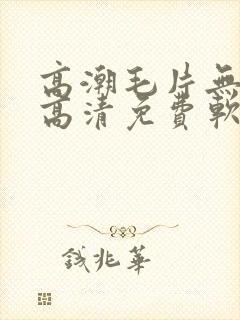 高潮毛片無
高清免費軟
錢兆華